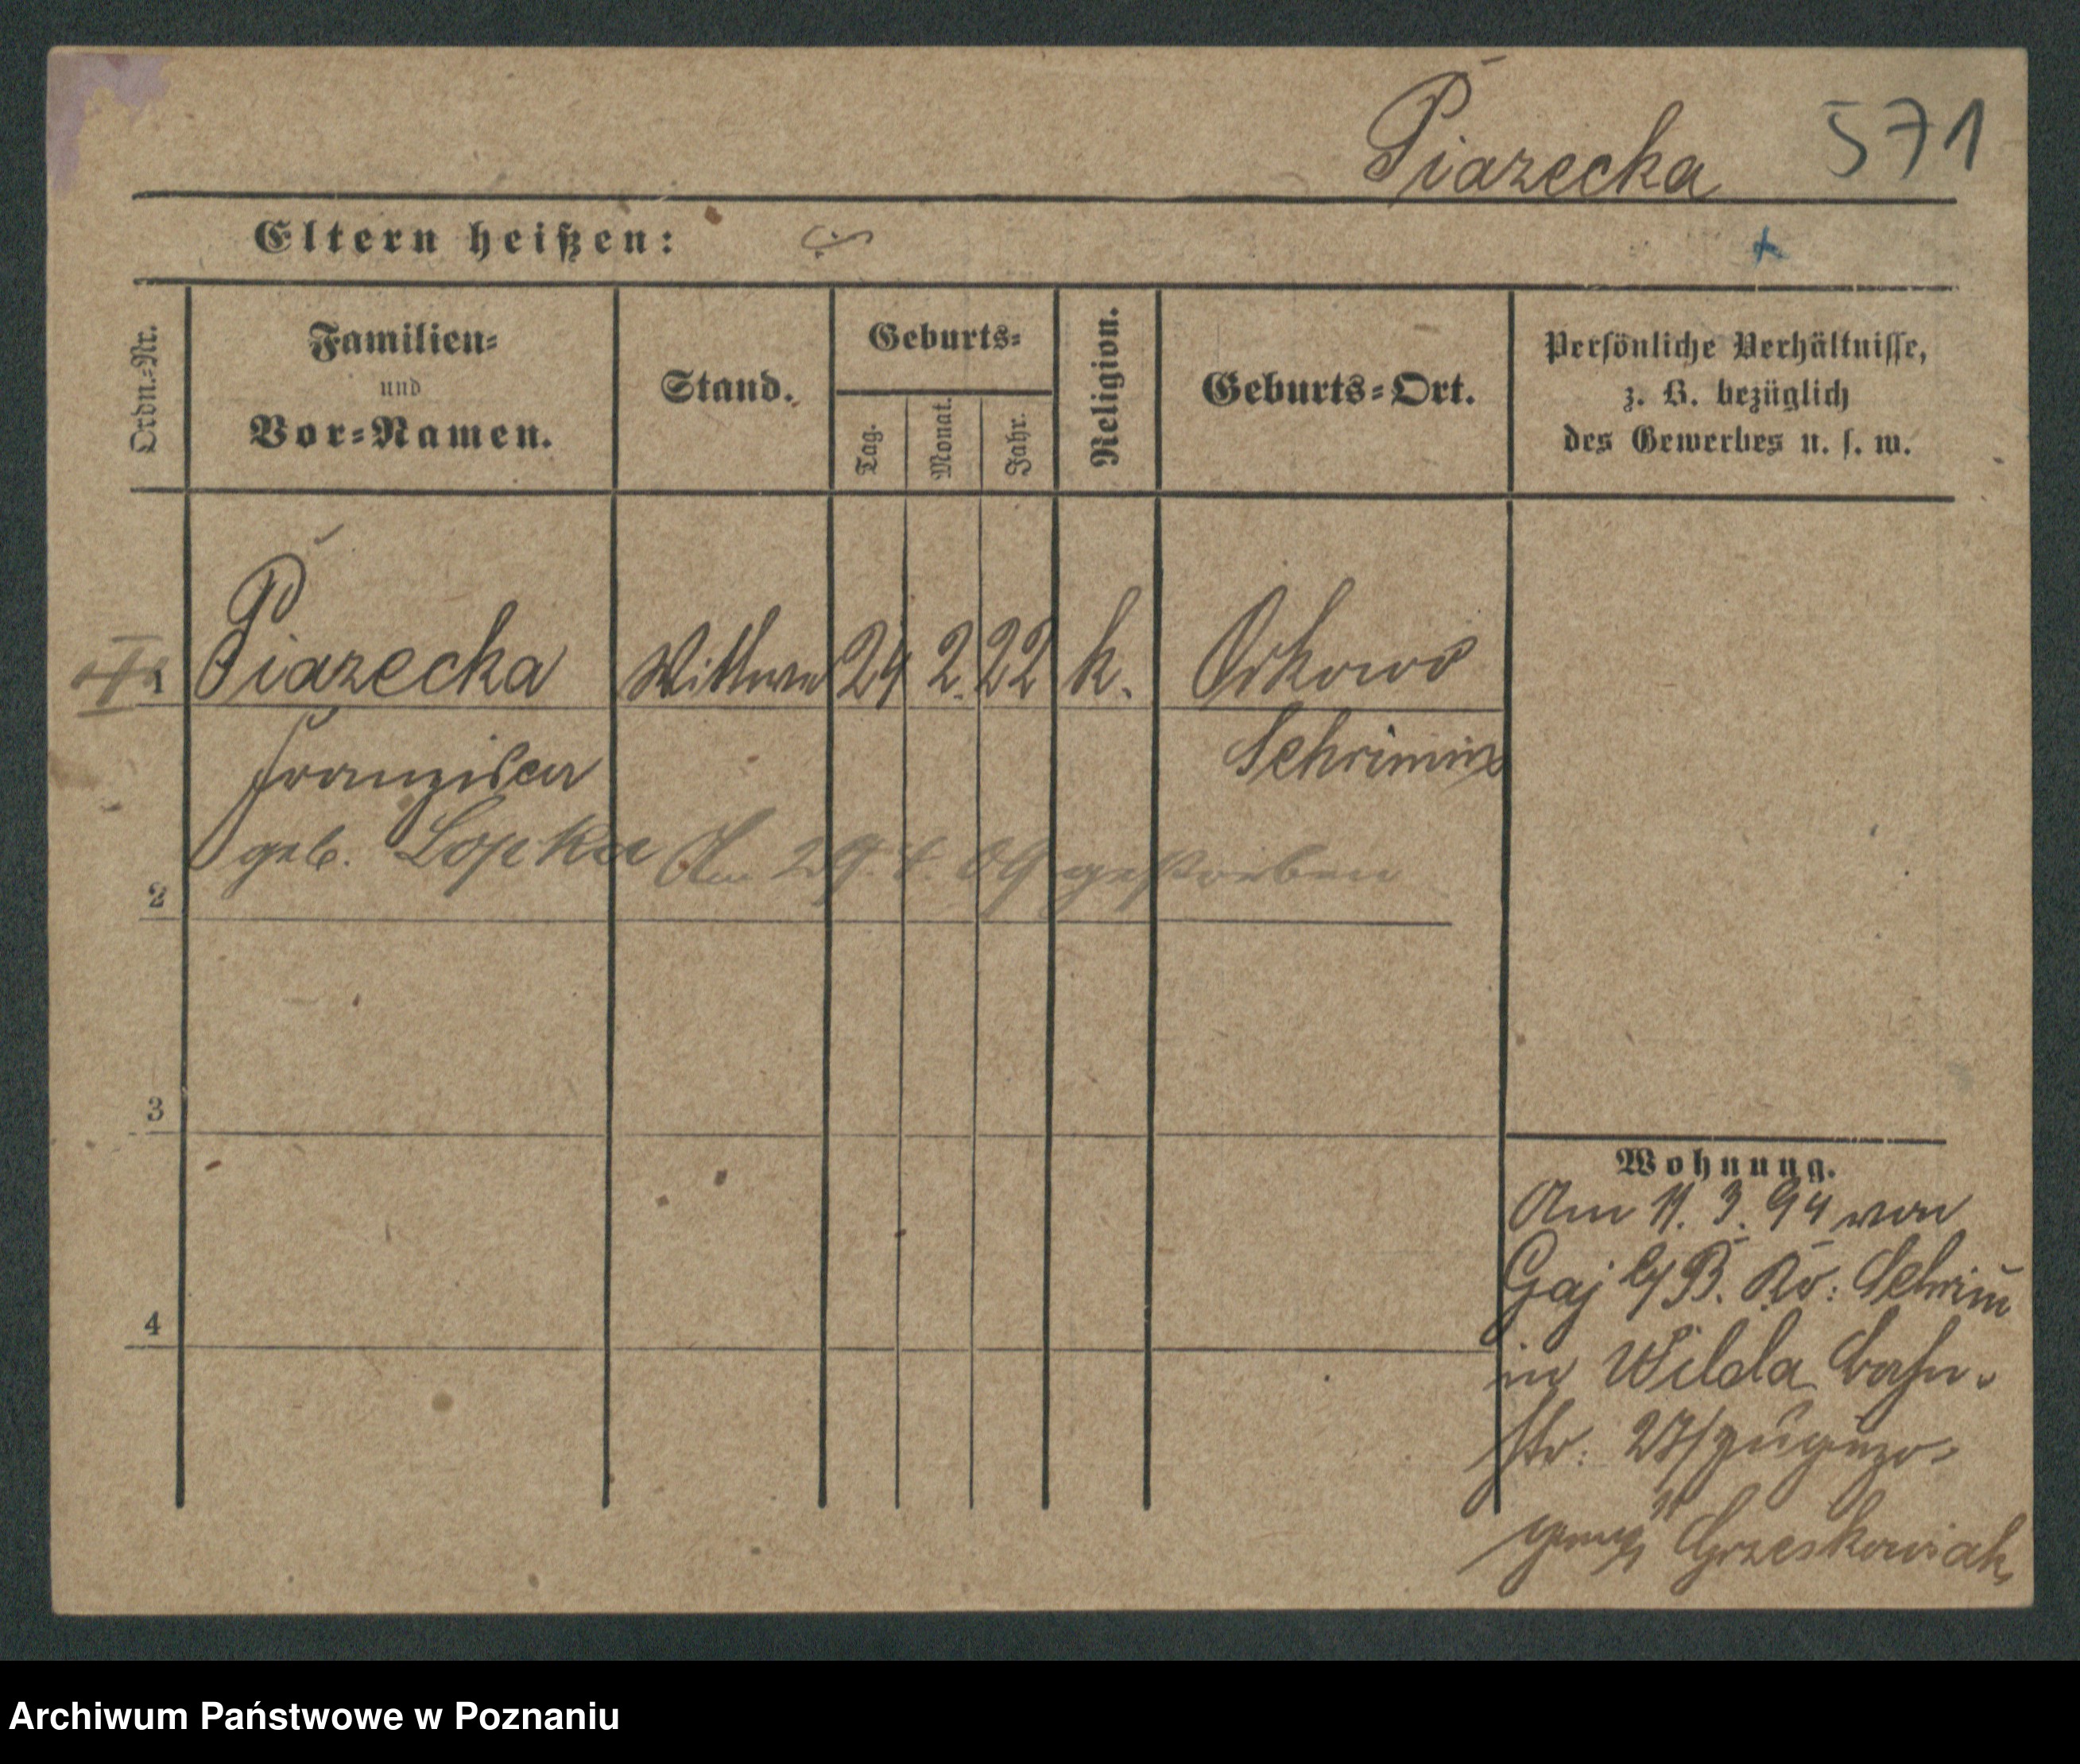 Piazecka 571
Eltern heißen:
Ordn.-Nr.
Familien-
und
Vor-Namen.
Stand.
Geburts-
Tag.
Monat.
Jahr.
Religion.
Geburts-Ort.
Persönliche Verhältnisse,
z. B. bezüglich
des Gewerbes u. s. w.
1 Piazecka Wittwe 24 2. 22 k. Orkowo
Franziska Schrimm
geb. Lopka Am 29. 09 gestorben
2
3
4
Wohnung.
Am 11. 3. 94 von
Gaj Schrimm
in Wilda Bahn-
str: 27/ zugezo-
gen Grzeskowiak
Archiwum Państwowe w Poznaniu